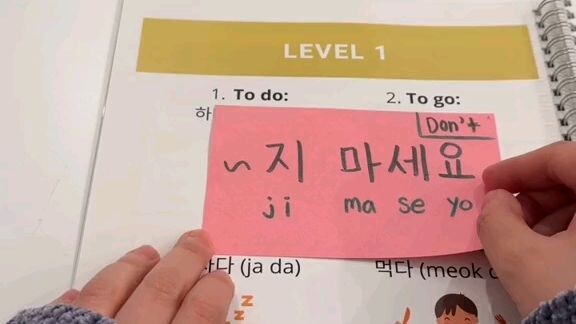 LEVEL 1
1. To do:
2. To go:
하
Don't
~지 마세요
ji ma se yo
다 (ja da)
먹다 (meok
z
z